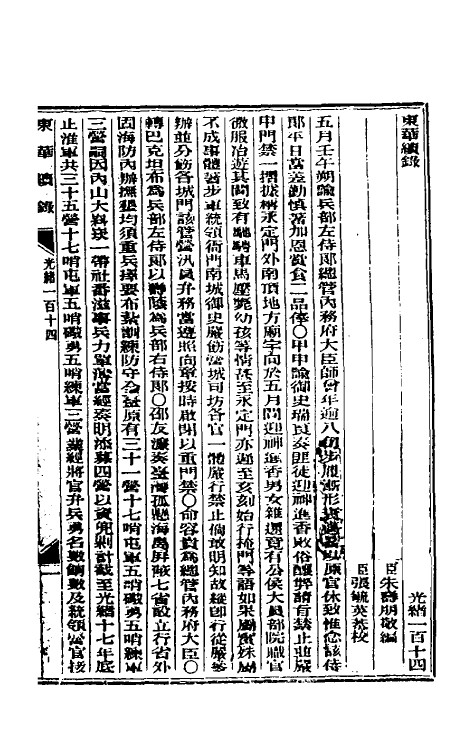 東華續錄
光緒一百十四
臣朱壽朋敬編
臣張毓英恭校
五月壬午朔諭兵部左侍郎總管內務府大臣師曾年逾八旬步履漸形原官休致惟念該侍
郎平日當差勤慎著加恩賞食二品俸〇甲申諭御史瑞良奏匪徒迎神進香敗俗釀弊請旨禁止並嚴
申門禁一摺據稱永定門外南頂地方廟宇向於五月間迎神進香男女雜遝竟有公侯大員部院職官
微服冶遊其間致有馳騁車馬壓斃幼孩等情甚至永定門亦遲至亥刻始行掩門等語如果屬實殊屬
不成事體著步軍統領衙門南城御史嚴飭營城司坊各官一體嚴行禁止倘敢明知故縱卽行從嚴參
辦並分飭各城門該管營汛員弁務當遵照向章按時啟閉以重門禁〇命容貴爲總管內務府大臣〇
轉巴克坦布爲兵部左侍郎以爲兵部右侍郎〇邵友濂奏臺灣孤懸海島屏蔽七省設立行省外
固海防內辦撫墾均須重兵擇要布紮訓練防守全臺原有三十一營十七哨屯軍五哨礮勇五哨練軍
三營嗣因內山大嵙崁一帶社番滋事兵力單薄當經奏明添募四營以資兜剿計截至光緒十七年底
止淮軍共三十五營十七哨屯軍五哨礮勇五哨練軍三營業經將官弁兵勇名數餉數及統領營官接
東華續錄
光緒一百十四
一